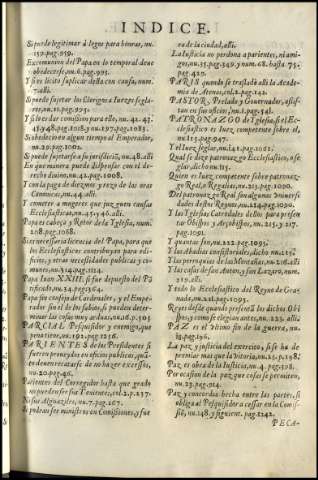 INDICE.
Si puede legitimar à legos para honras, nu.
152. pag. 959.
Excomunion del Papa en lo temporal deue
obedecerse, nu. 6. pag. 995.
Y si es licito suplicar della con causa, num.
7. alli.
Si puede sujetar los Clerigos a Iuezes segla-
res, nu. 15. pag. 993.
Y si les dar comision para ello, nu. 41. 43.
Si bedeciera algun tiempo al Emperador,
nu. 29. pag. 1002.
Si puede sujetarse a su jurisdiciō, nu. 48. alli
En que manera puede dispensar con el de-
recho diuino, nu. 42. pag. 1008.
Y con la paga de diezmos y rezo de las oras
Canonicas, nu. 44. alli.
Y cometer a mugeres que juzguen causas
Ecclesiasticas, nu. 45. y 46. alli.
Papa es cabeça y Retor de la Yglesia, num.
208. pag. 1088.
Si es necessaria licencia del Papa, para que
los Ecclesiasticos contribuyan para edi-
ficios, y otras necessidades publicas y co-
munes, nu. 314. pag. 1124.
Papa Iuan XXIII. si fue depuesto del Pō
tificado, nu. 34. pag. 564.
Papa sin cōsejo de Cardenales, y el Empe-
rador sin el de los sabios, si pueden deter-
minar las cosas muy arduas, nu. 16. p. 502.
PARCIAL Pesquisidor y enemigo, que
pena tiene, nu. 192. pag. 1216.
PARIENTES de los Presidentes si
fueren proueydos en oficios publicos, quā-
to deuen recatarse de no hazer excessos,
nu. 20. pag. 46.
Parientes del Corregidor hasta que grado
no pueden ser sus Tenientes, col. 2. p. 237.
No sus Alguaziles, nu. 7. pag. 267.
Si podran ser ministros en Comissiones, y fue
ra de la ciudad, alli.
La Iusticia no perdona a parientes, ni ami-
gos, nu. 35. pag. 349. y num. 68. hasta 75.
pag. 420.
PARIS quando se trasladò alli la Acade-
mia de Atenas, col. 2. pag. 142.
PASTOR, Prelado y Gouernador, assis-
tan en sus oficios, nu. 5. pag. 361.
PATRONAZGO de Iglesia, si el Ec-
clesiastico es Iuez competente sobre el,
nu. 115. pag. 947.
Y el Iuez seglar, nu. 141. pag. 1061.
Qual se diga patronazgo Ecclesiastico, o se
glar, dicho nu. 115.
Quien es Iuez competente sobre patronaz-
gos Reales, o Regulies, nu. 213. pag. 1090.
Del patronazgo Real son algunas Vniuersi-
dades destos Reynos, nu. 224. pag. 1094.
Y las Yglesias Catedrales dellos para presen
tar Obispos y Arçobispos, nu. 215. y 217
pag. 1091.
Y quantas son, nu. 222. pag. 1093.
Y las Abadias consistoriales, dicho nu. 215.
Y las perroquias de las Montañas, nu. 216. alli
Y las casas de san Anton, y san Lazaro, num.
219. alli.
Y todo lo Ecclesiastico del Reyno de Gra-
nada, nu. 221. pag. 1093.
Reyes desde quando presentā los dichos Obis
pos, y como se elegian antes, nu. 223. alli.
PAZ es el vltimo fin de la guerra, nu.
La paz y justicia del exercito, si se ha de
premiar mas que la vitoria, nu. 25. p. 198.
Paz es obra de la Iusticia, nu. 4. pag. 108.
Por ocasion de la paz que cosas se permiten,
nu. 23. pag. 114.
Paz y concordia hecha entre las partes, si
obliga al Pesquisidor a cessar en la Comis-
siō, nu. 148. y siguient. pag. 1242.
PECA-